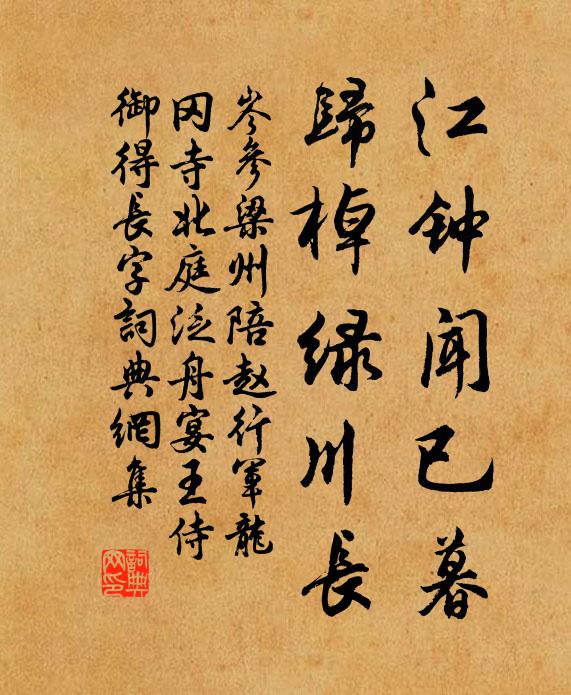 江钟闻已暮
歸棹绿川長
岑參梁州陪赵行軍龍
冈寺北庭泛舟宴王侍
御得長字詞典網集
詞典
网印